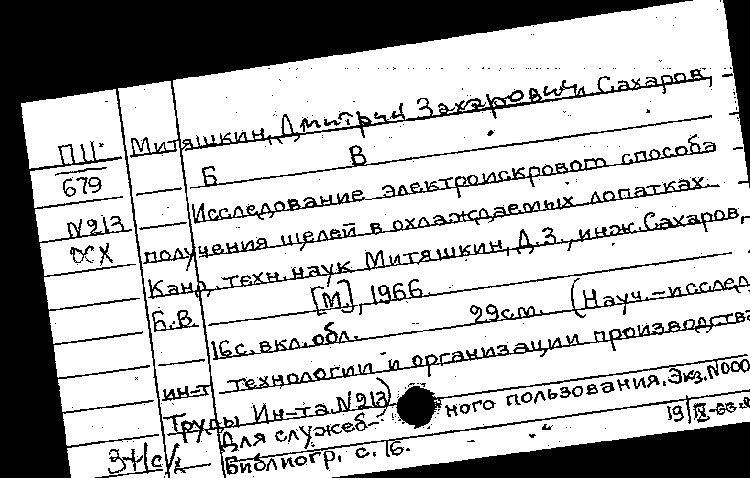 Митяшкин, Дмитрий Захарович и Сахаров,
ПЦ
679
Б В
Исследование электроискрового способа
№213
ОСХ
получения щелей в охлаждаемых лопатках.
Канд. техн. наук Митяшкин, Д.З., инж. Сахаров,
Б.В. [М], 1966.
16с. вкл. обл. 29см. (Науч.-исслед.
ин-т технологии и организации производства
Труды Ин-та №213)
Для служеб- ного пользования. Экз. №000
Библиогр. с. 16.